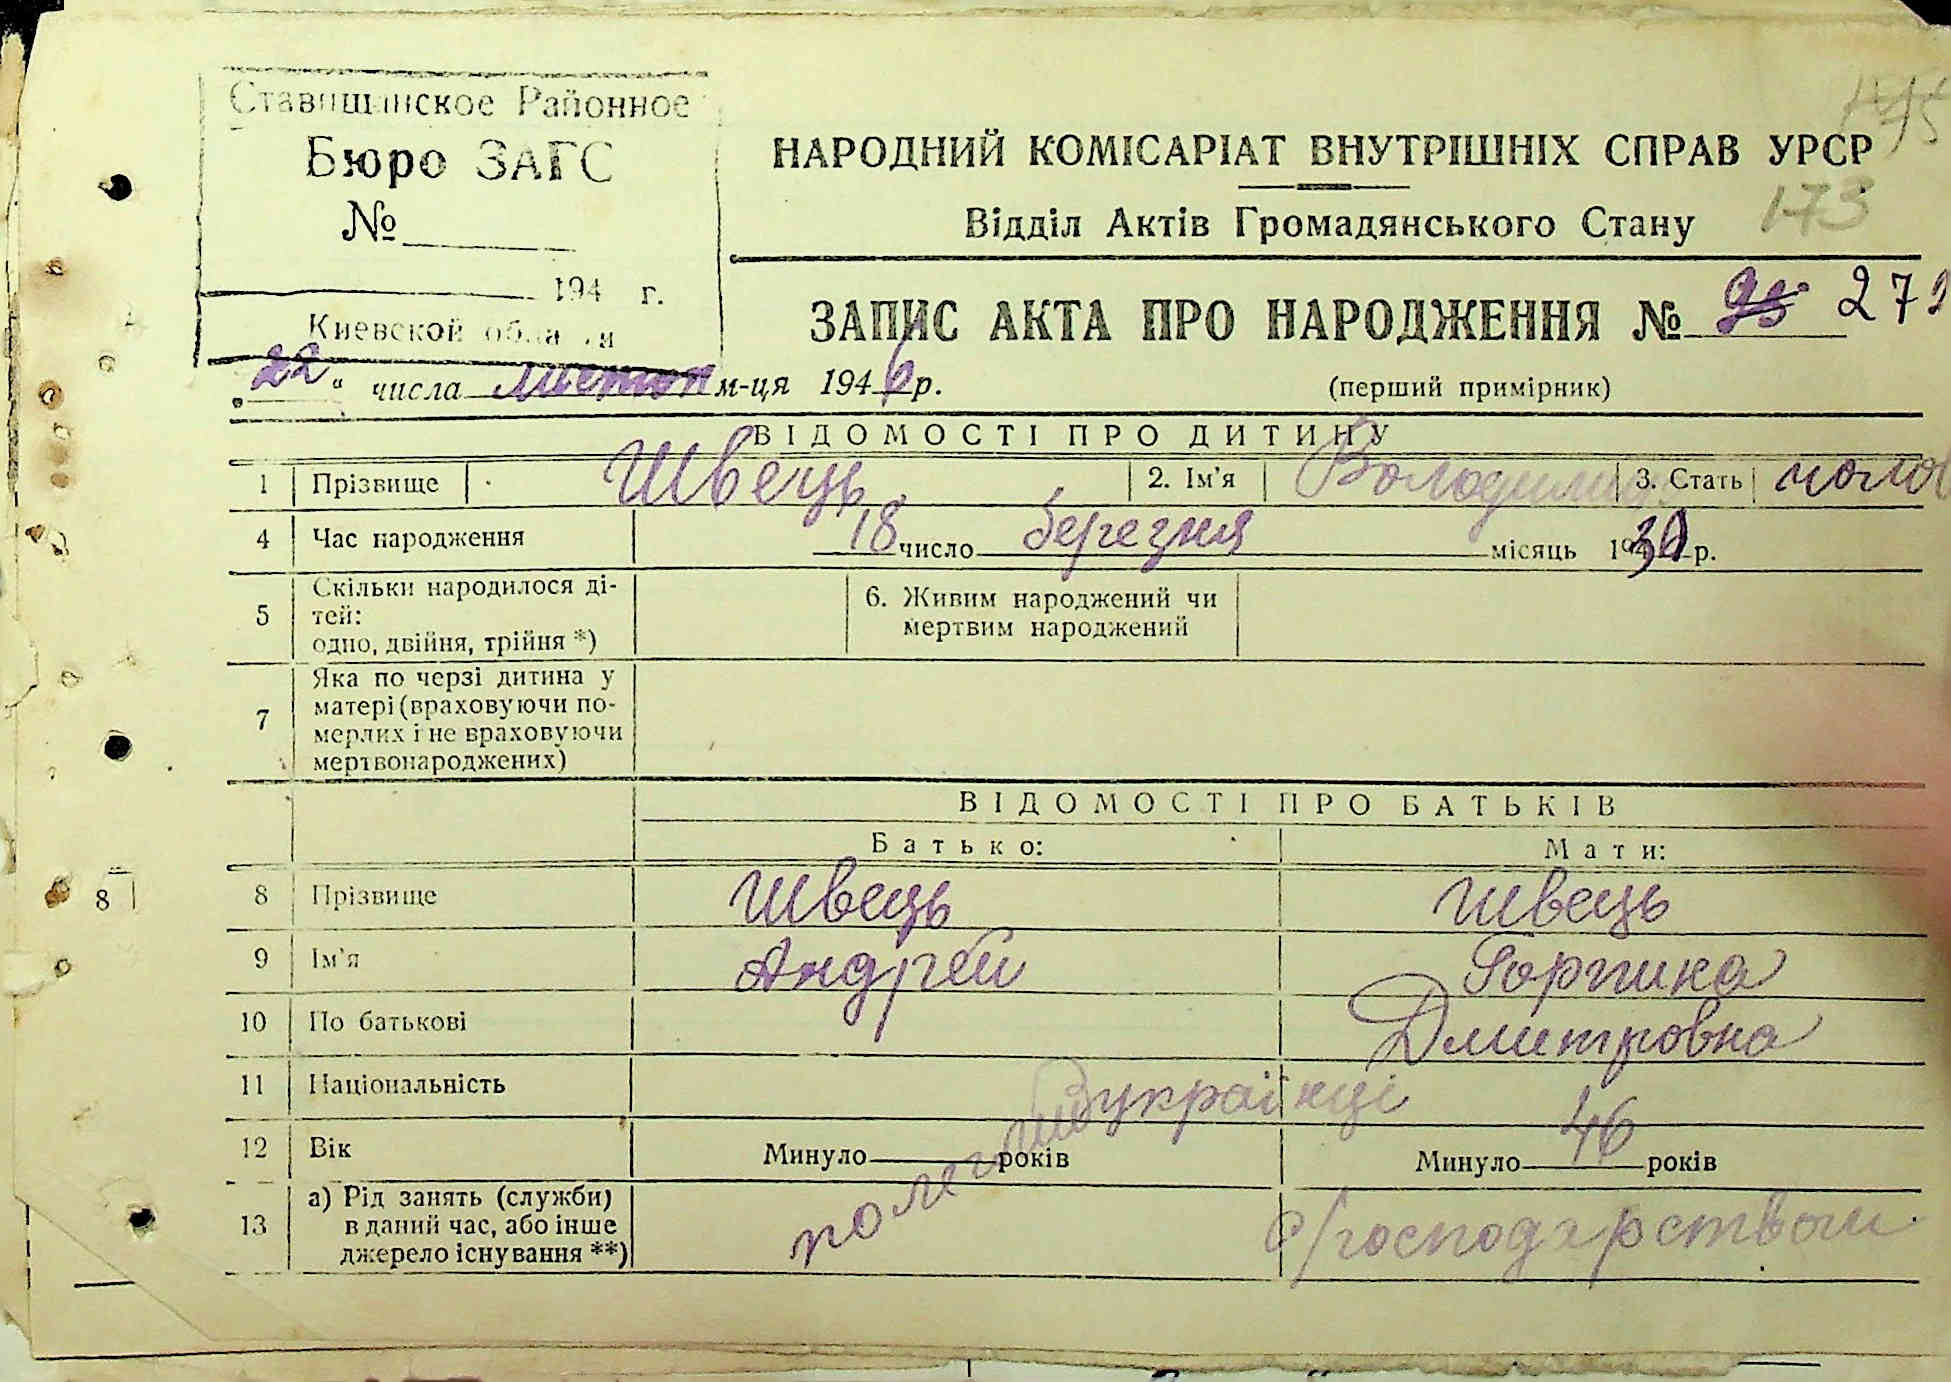 Ставищанское Районное
Бюро ЗАГС
№
194 г.
Киевской области
175
НАРОДНИЙ КОМІСАРІАТ ВНУТРІШНІХ СПРАВ УРСР
173
Відділ Актів Громадянського Стану
ЗАПИС АКТА ПРО НАРОДЖЕННЯ № 272
22 " числа листоп м-ця 1946 р.
(перший примірник)
ВІДОМОСТІ ПРО ДИТИНУ
1 Прізвище Швець 2. Ім'я Володимир 3. Стать чолов
4 Час народження 18 число березня місяць р.
5 Скільки народилося ді-
тей:
одно, двійня, трійня *)
6. Живим народжений чи
мертвим народжений
7 Яка по черзі дитина у
матері (враховуючи по-
мерлих і не враховуючи
мертвонароджених)
ВІДОМОСТІ ПРО БАТЬКІВ
Батько: Мати:
8
8 Прізвище Швець Швець
9 Ім'я Андрей Горпина
10 По батькові Дмитровна
11 Національність українці
12 Вік Минуло років Минуло 46 років
13 а) Рід занять (служби)
в даний час, або інше
джерело існування **)
с/господарством